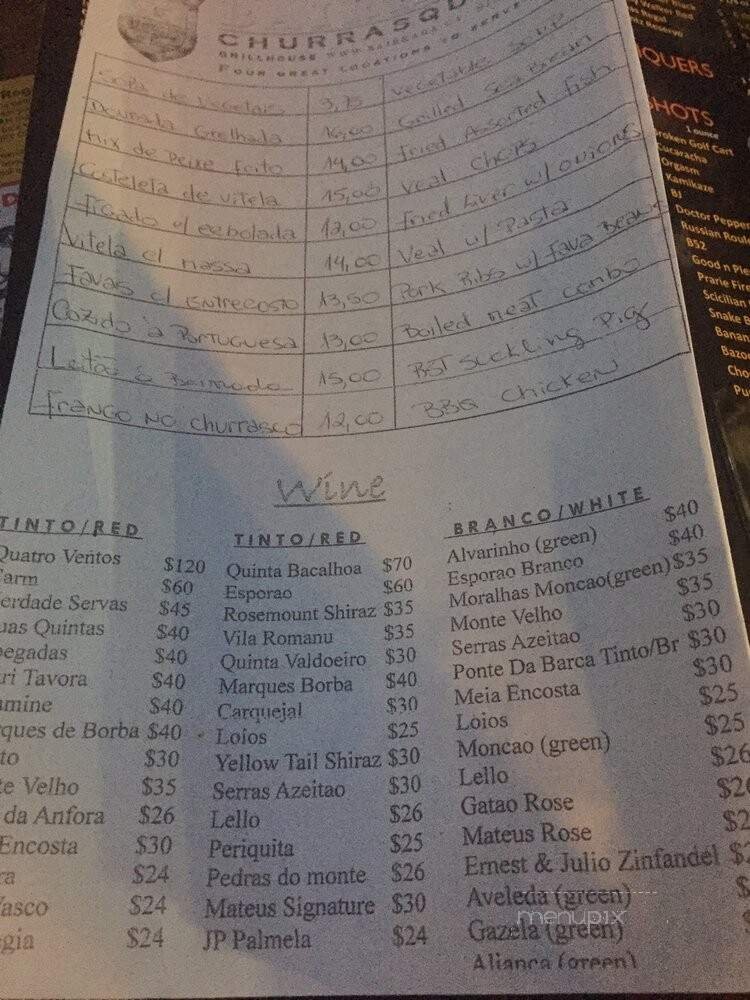 CHURRASQ
GRILLHOUSE
FOUR GREAT LOCATIONS TO SERVE
Sopa de vegetais 3,75 vegetable soup
Dourada Grelhada 16,00 Grilled Sea Bream
Mix de Peixe frito 14,00 fried Assorted Fish
Costeleta de vitela 15,00 Veal chops
Figado c/ cebolada 12,00 fried Liver w/ onions
Vitela c/ massa 14,00 Veal w/ Pasta
Favas c/ ENTRECOSTO 13,50 Pork Ribs w/ Fava Beans
Cozido à PORTUGUESA 13,00 Boiled meat combo
Leitão à Bairrada 15,00 BST suckling Pig
Frango NO churrasco 12,00 BBQ CHICKEN
Wine
TINTO/RED
Quatro Ventos $120
arm $60
erdade Servas $45
uas Quintas $40
pegadas $40
ri Tavora $40
amine $40
rques de Borba $40
to $30
te Velho $35
da Anfora $26
Encosta $30
ra $24
Vasco $24
egia $24
TINTO/RED
Quinta Bacalhoa $70
Esporao $60
Rosemount Shiraz $35
Vila Romanu $35
Quinta Valdoeiro $30
Marques Borba $40
Carquejal $30
Loios $25
Yellow Tail Shiraz $30
Serras Azeitao $30
Lello $26
Periquita $25
Pedras do monte $26
Mateus Signature $30
JP Palmela $24
BRANCO/WHITE
Alvarinho (green) $40
Esporao Branco $40
Moralhas Moncao(green) $35
Monte Velho $35
Serras Azeitao $30
Ponte Da Barca Tinto/Br $30
Meia Encosta $30
Loios $25
Moncao (green) $25
Lello $26
Gatao Rose $26
Mateus Rose $2
Ernest & Julio Zinfandel $2
Aveleda (green) $
Gazela (green)
Alianca (green)
menupix
QUERS
SHOTS
1 ounce
roken Golf Cart
Cucaracha
Orgasm
Kamikaze
BJ
Doctor Pepper
Russian Roul
B52
Good n Ple
Prarie Fire
Scicilian
Snake B
Banan
Bazo
Cho
Pu